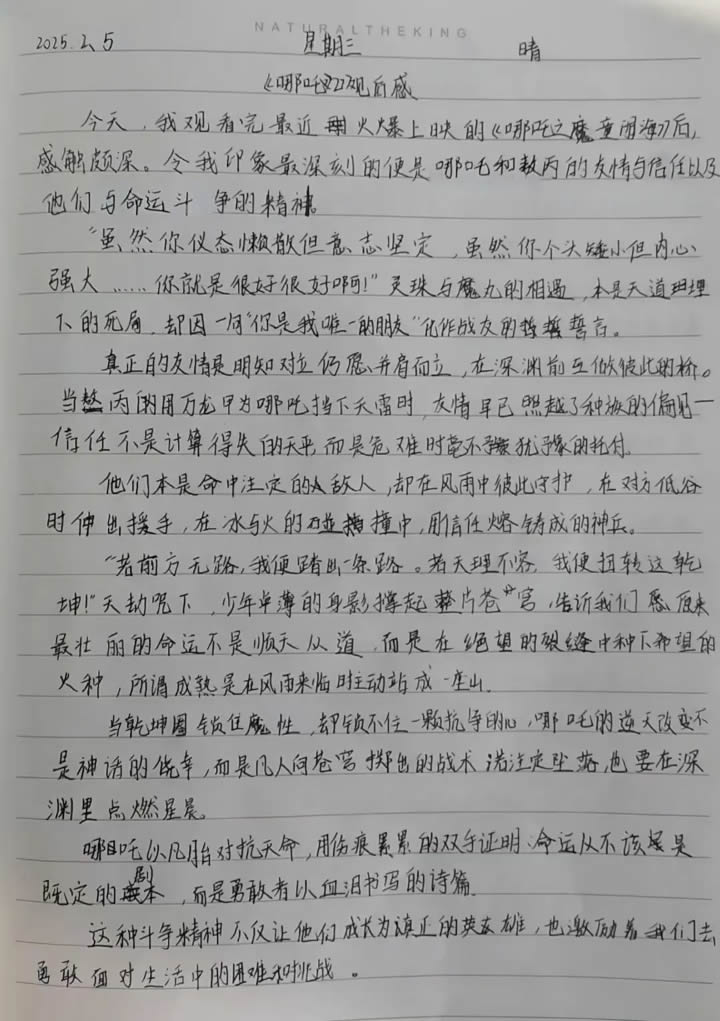 NATURALTHEKING
2025.2.5 星期三 晴
《哪吒2》观后感
今天，我观看完最近火爆上映的《哪吒之魔童闹海》后，
感触颇深。令我印象最深刻的便是哪吒和敖丙的友情与信任以及
他们与命运斗争的精神。
“虽然你仪态懒散但意志坚定，虽然你个头矮小但内心
强大……你就是很好很好啊！”灵珠与魔丸的相遇，本是天道
下的死局，却因一句“你是我唯一的朋友”化作战友的誓言。
真正的友情是明知对立仍愿并肩而立，在深渊前互做彼此的桥。
当敖丙的用万龙甲为哪吒挡下天雷时，友情早已超越了种族的偏见—
信任不是计算得失的天平，而是危难时毫不犹豫的托付。
他们本是命中注定的敌人，却在风雨中彼此守护，在对方低谷
时伸出援手，在冰与火的碰撞中，用信任熔铸成的神兵。
“若前方无路，我便踏出一条路。若天理不容，我便扭转这乾
坤！”天劫咒下，少年单薄的身影撑起整片苍穹，告诉我们原来
最壮丽的命运不是顺天从道，而是在绝望的裂缝中种下希望的
火种，所谓成熟是在风雨来临时主动站成一座山。
当乾坤圈锁住魔性，却锁不住一颗抗争的心，哪吒的逆天改变不
是神话的侥幸，而是凡人向苍穹掷出的战术 诺注定坠落，也要在深
渊里点燃星晨。
哪吒以凡胎对抗天命，用伤痕累累的双手证明：命运从不该是
既定的剧本，而是勇敢者以血泪书写的诗篇。
这种斗争精神不仅让他们成长为真正的英雄，也激励着我们去
勇敢面对生活中的困难和挑战。